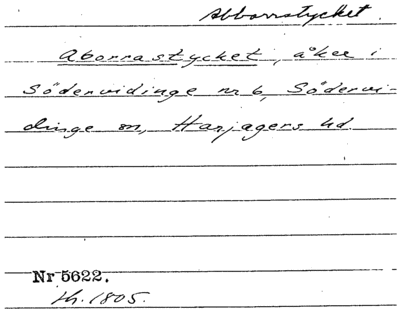 Abborrstycket.
Aborrastycket, åker i
Södervidinge nr 6, Södervi-
dinge sn, Harjagers hd.
Nr 5622.
1805.